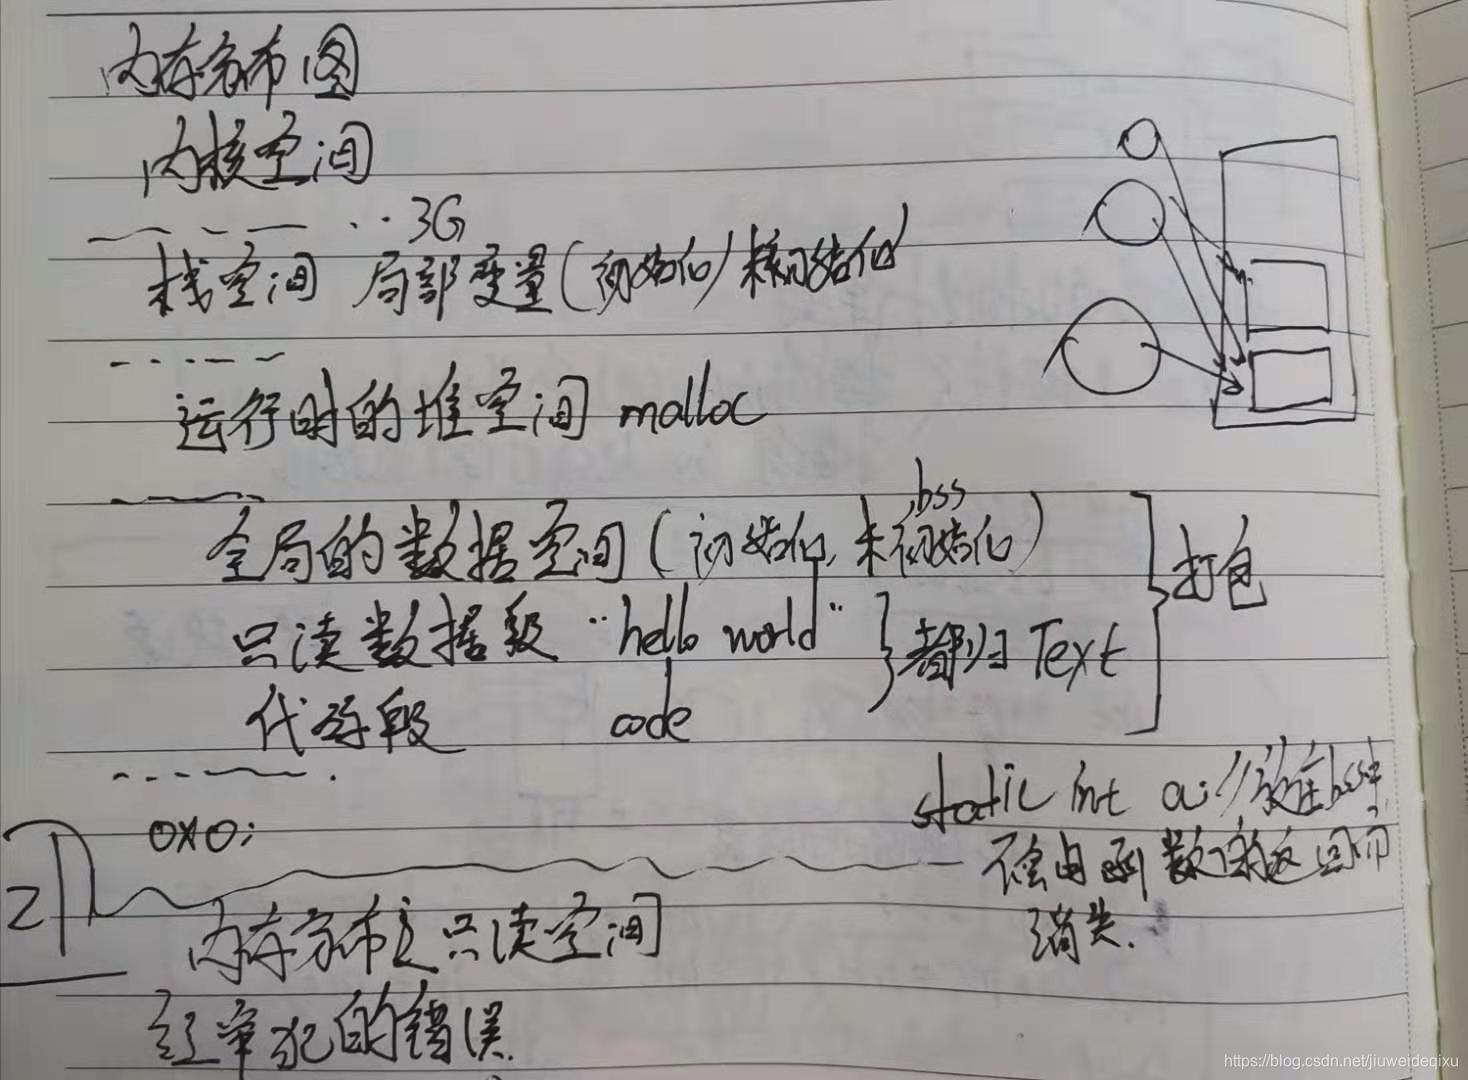 内存分布图
内核空间
3G
栈空间 局部变量(初始化)未初始化
运行时的堆空间 malloc
.bss
全局的数据空间(初始化,未初始化) 打包
只读数据段 "hello world" 都归 Text
代码段 code
static int a; //放在bss中,
0x0;
不会由函数的返回而
消失.
2
内存分布之只读空间
经常犯的错误.
https://blog.csdn.net/jiuweideqixu